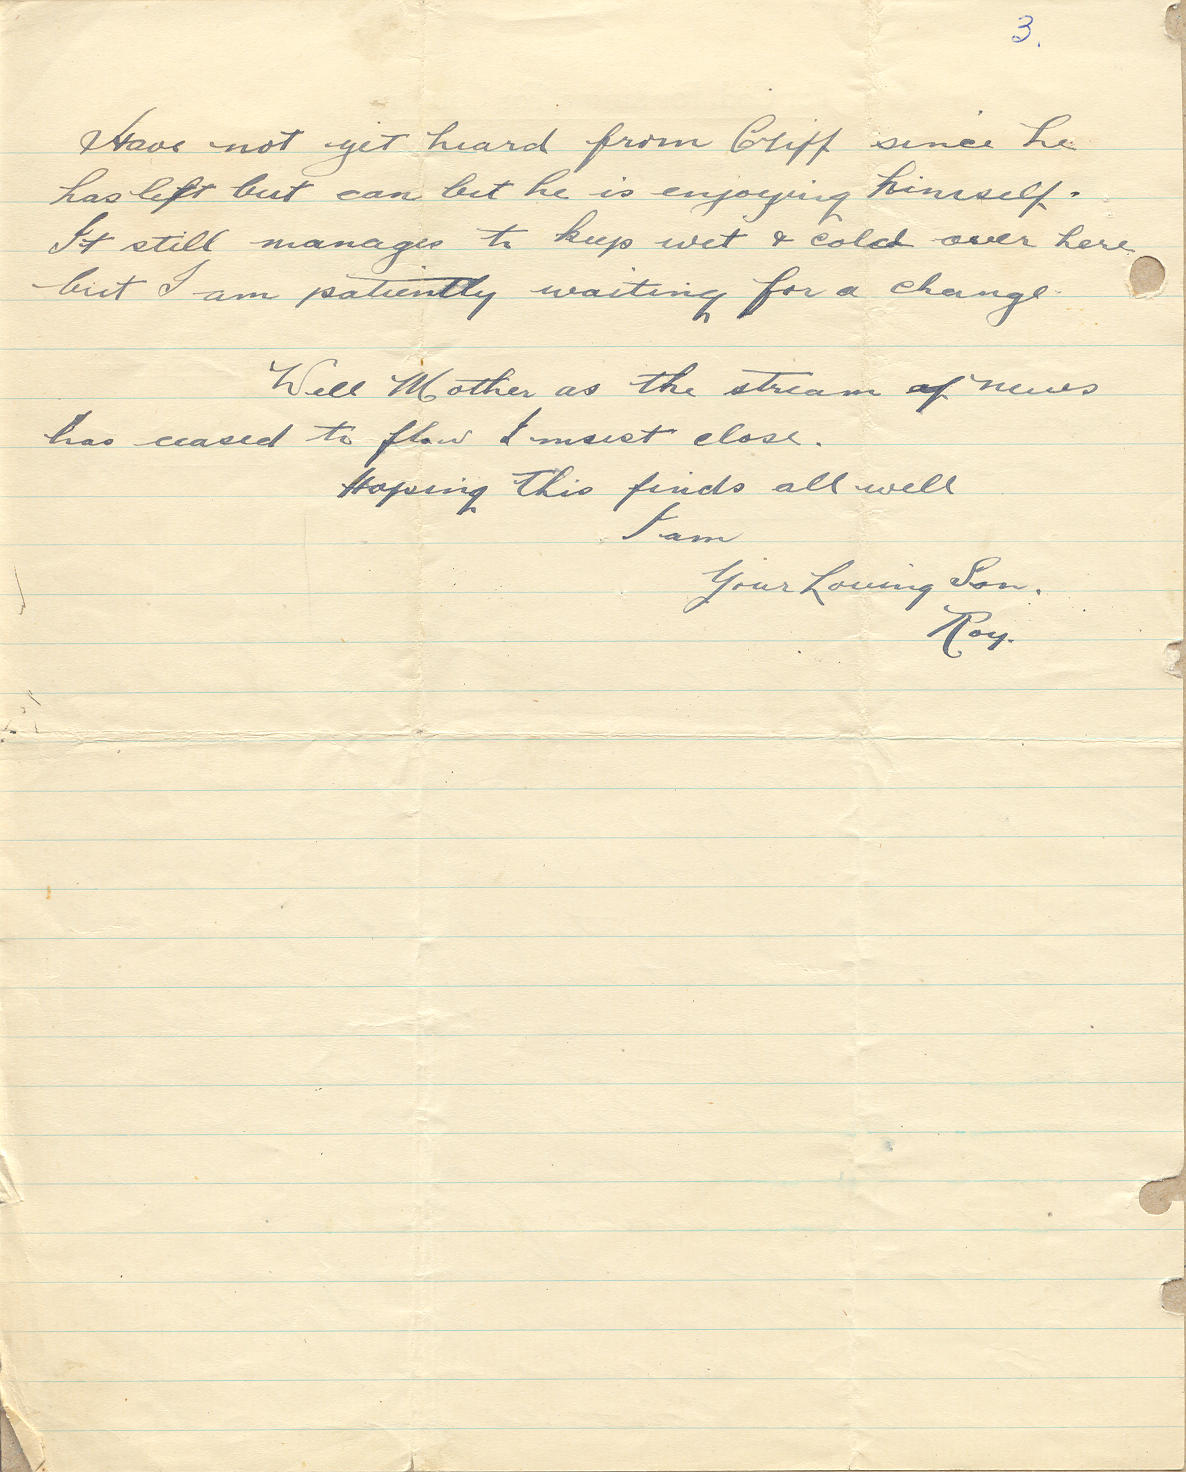 3.
Have not yet heard from Cliff since he
has left but can bet he is enjoying himself.
It still manages to keep wet & cold over here
but I am patiently waiting for a change
Well Mother as the stream of news
has ceased to flow I must close.
Hoping this finds all well
I am
Your Loving Son.
Roy.